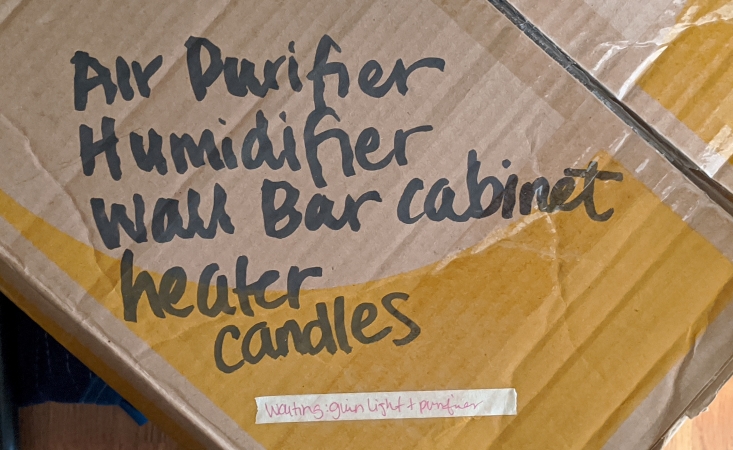 Air Purifier
Humidifier
Wall Bar cabinet
heater
candles
Waiting: light + purifier